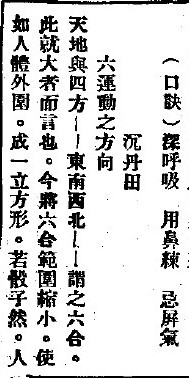 (口訣)深呼吸　用鼻練　忌屏氣
沉丹田
六運動之方向
天地與四方——東南西北——謂之六合。
此就大者而言也。今將六合範圍縮小。使
如人體外圍。成一立方形。若骰子然。人